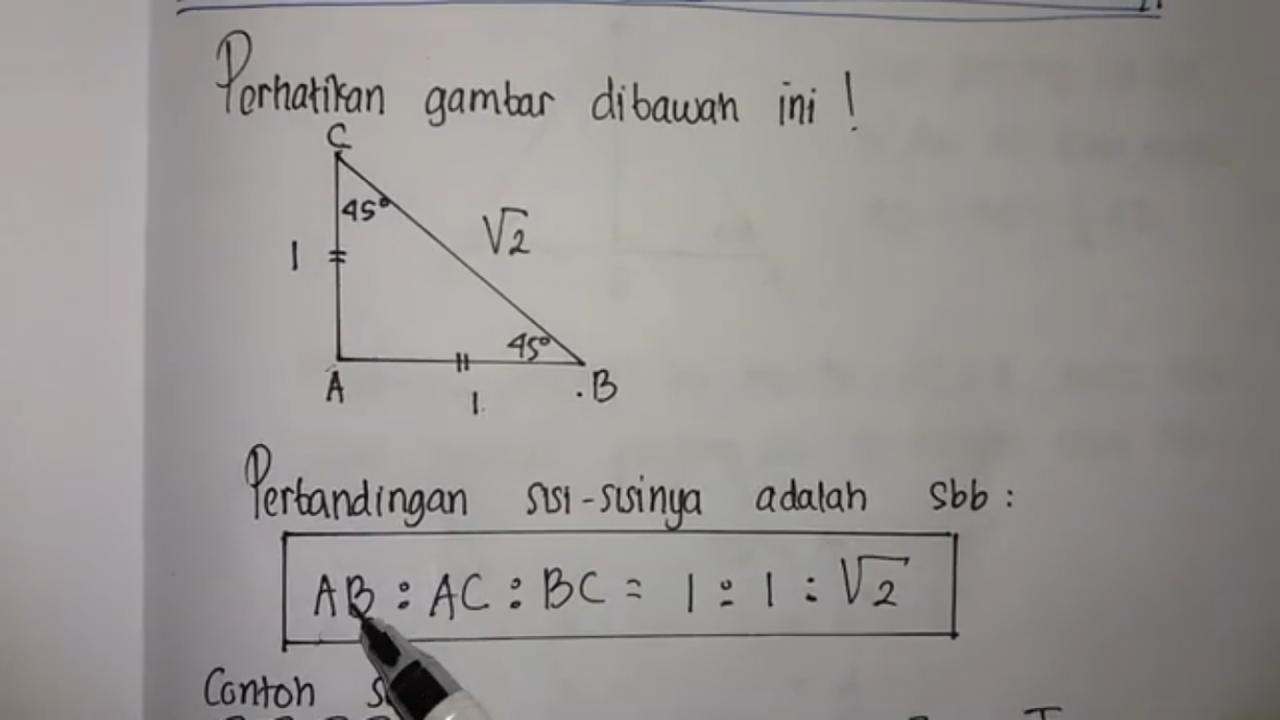 Perhatikan gambar dibawah ini !
C
45°
√2
1
45°
A
1
B
Perbandingan sisi-sisinya adalah sbb :
AB : AC : BC = 1 : 1 : √2
Contoh